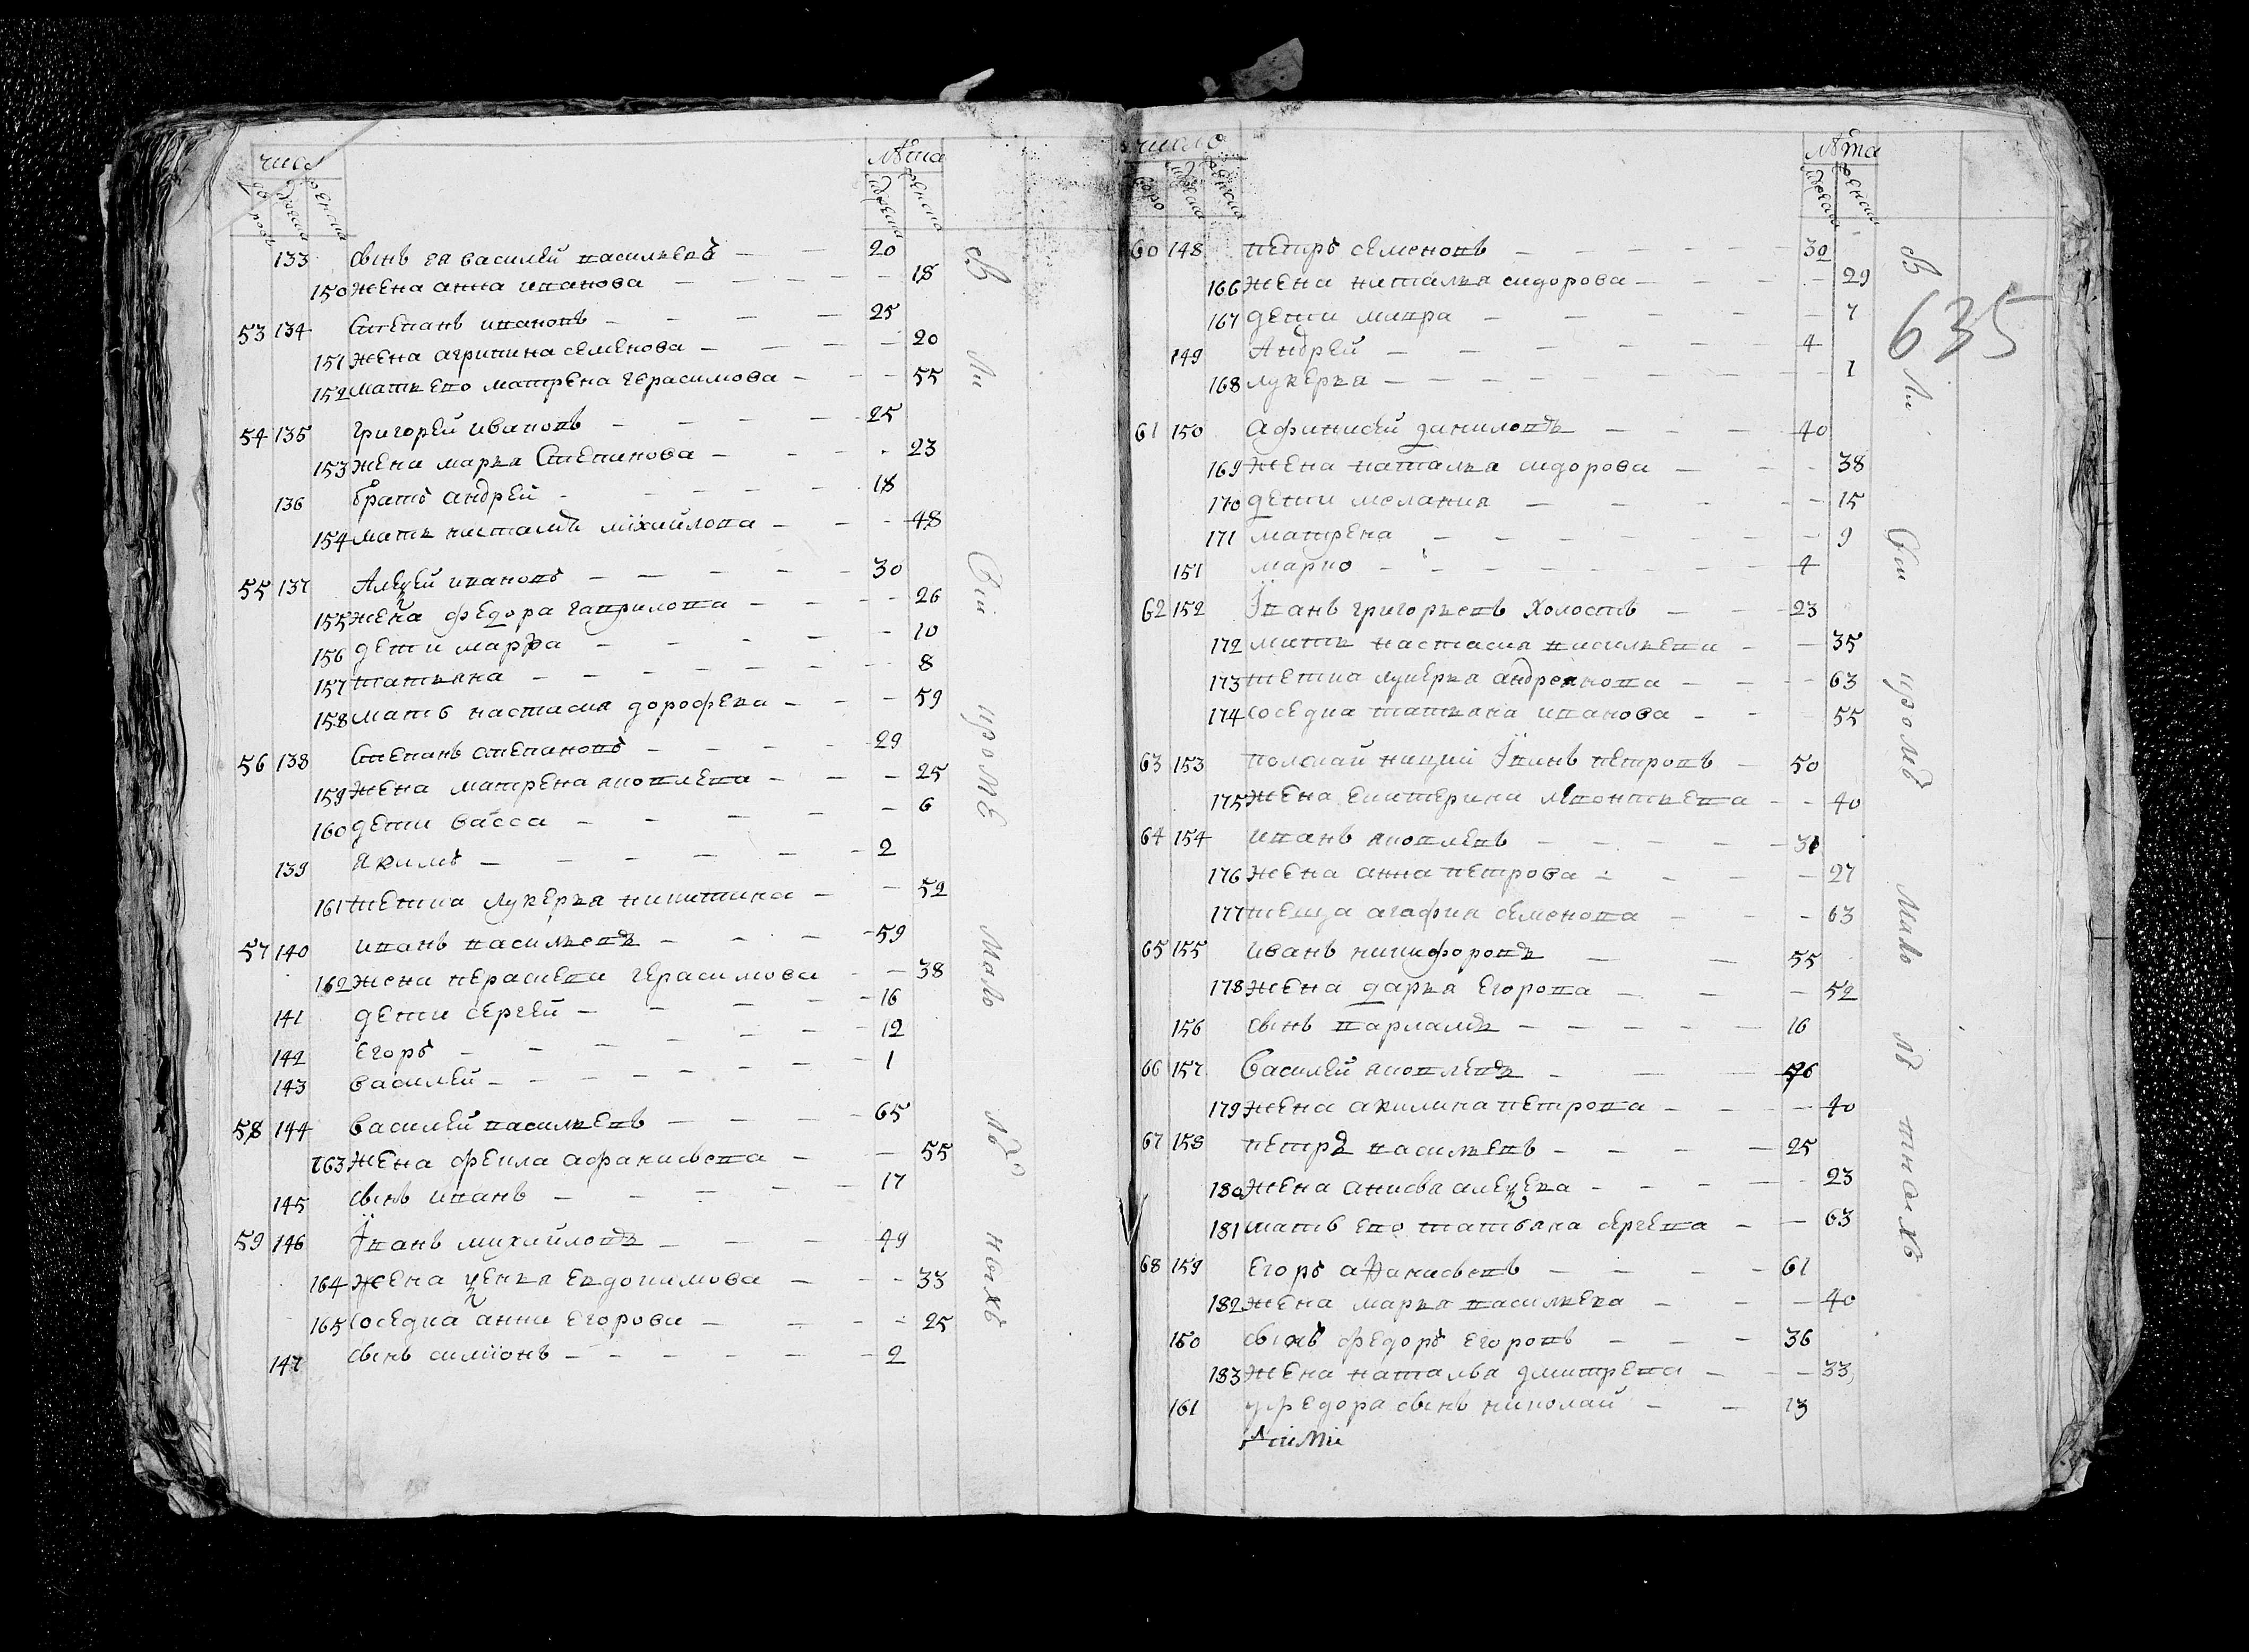 число
лѣта
133 сынъ ея василей васильевъ — — 20
150 жена анна иванова — — — 18
53 134 Степанъ ивановъ — — — — 25
151 жена агрипина семенова — — — 20
152 мать ево матрена герасимова — — — 55
54 135 григорей ивановъ — — — — 25
153 жена марья Степанова — — — 23
136 братъ андрей — — — — 18
154 мать наталья міхайлова — — — 48
55 137 Алексей ивановъ — — — — — 30
155 жена федора гаврилова — — — — 26
156 дети марфа — — — — 10
157 татьяна — — — — — — 8
158 мать настасия дорофева — — — 59
56 138 Степанъ степановъ — — — — 29
159 жена матрена яковлева — — — 25
160 дети васса — — — — — 6
139 якимъ — — — — — — 2
161 тетка лукерья никитина — — 52
57 140 иванъ васильевъ — — — — 59
162 жена герасимова — — 38
141 дети сергей — — — — 16
142 Егоръ — — — — — — 12
143 василей — — — — — — 1
58 144 василей васильевъ — — — — 65
163 жена фекла афанасьева — — 55
145 сынъ иванъ — — — — — 17
59 146 Їванъ михайловъ — — — 49
164 жена Евдокимова — — — 33
165 соседка анна егорова — — — 25
147 сынъ симіонъ — — — — — — 2
В Ли Сей цромѣ Мало лѣ ныхъ
число
лѣта
635
60 148 петръ семеновъ — — — — — 30
166 жена наталья сидорова — — — — 29
167 дети мавра — — — — — 7
149 Андрей — — — — — 4
168 лукерья — — — — — — — — 1
61 150 афанасей даниловъ — — — 40
169 жена наталья сидорова — — — 38
170 дети мелания — — — — 15
171 матрена — — — — — — — 9
151 марко — — — — — — — — 4
62 152 Їванъ григорьевъ холостъ — — 23
172 мать настасия васильева — — 35
173 тетка лукерья андреянова — — — 63
174 соседка татьяна иванова — — 55
63 153 Їванъ петровъ — 50
175 жена Екатерина леонтьева — — 40
64 154 иванъ яковлевъ — — — — — 31
176 жена анна петрова — — — — 27
177 теща агафия семенова — — — 63
65 155 иванъ никифоровъ — — 55
178 жена дарья Егорова — — — 52
156 сынъ варламъ — — — — — 16
66 157 Василей яковлевъ — — — 56
179 жена акилина петрова — — — 40
67 158 петръ васильевъ — — — — 25
180 жена анисья алексева — — — — 23
181 мать ево татьяна сергева — — 63
68 159 Егоръ афанасьевъ — — — — 61
182 жена марья васильева — — — 40
160 сынъ федоръ егоровъ — — — 36
183 жена наталья дмитрева — — — 33
161 у федора сынъ николай — — 13
В Ли Сей цромѣ Мало лѣ тнихъ